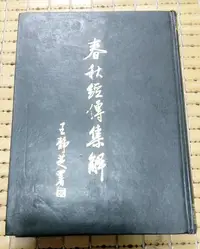 春秋經傳集解
王靜芝署